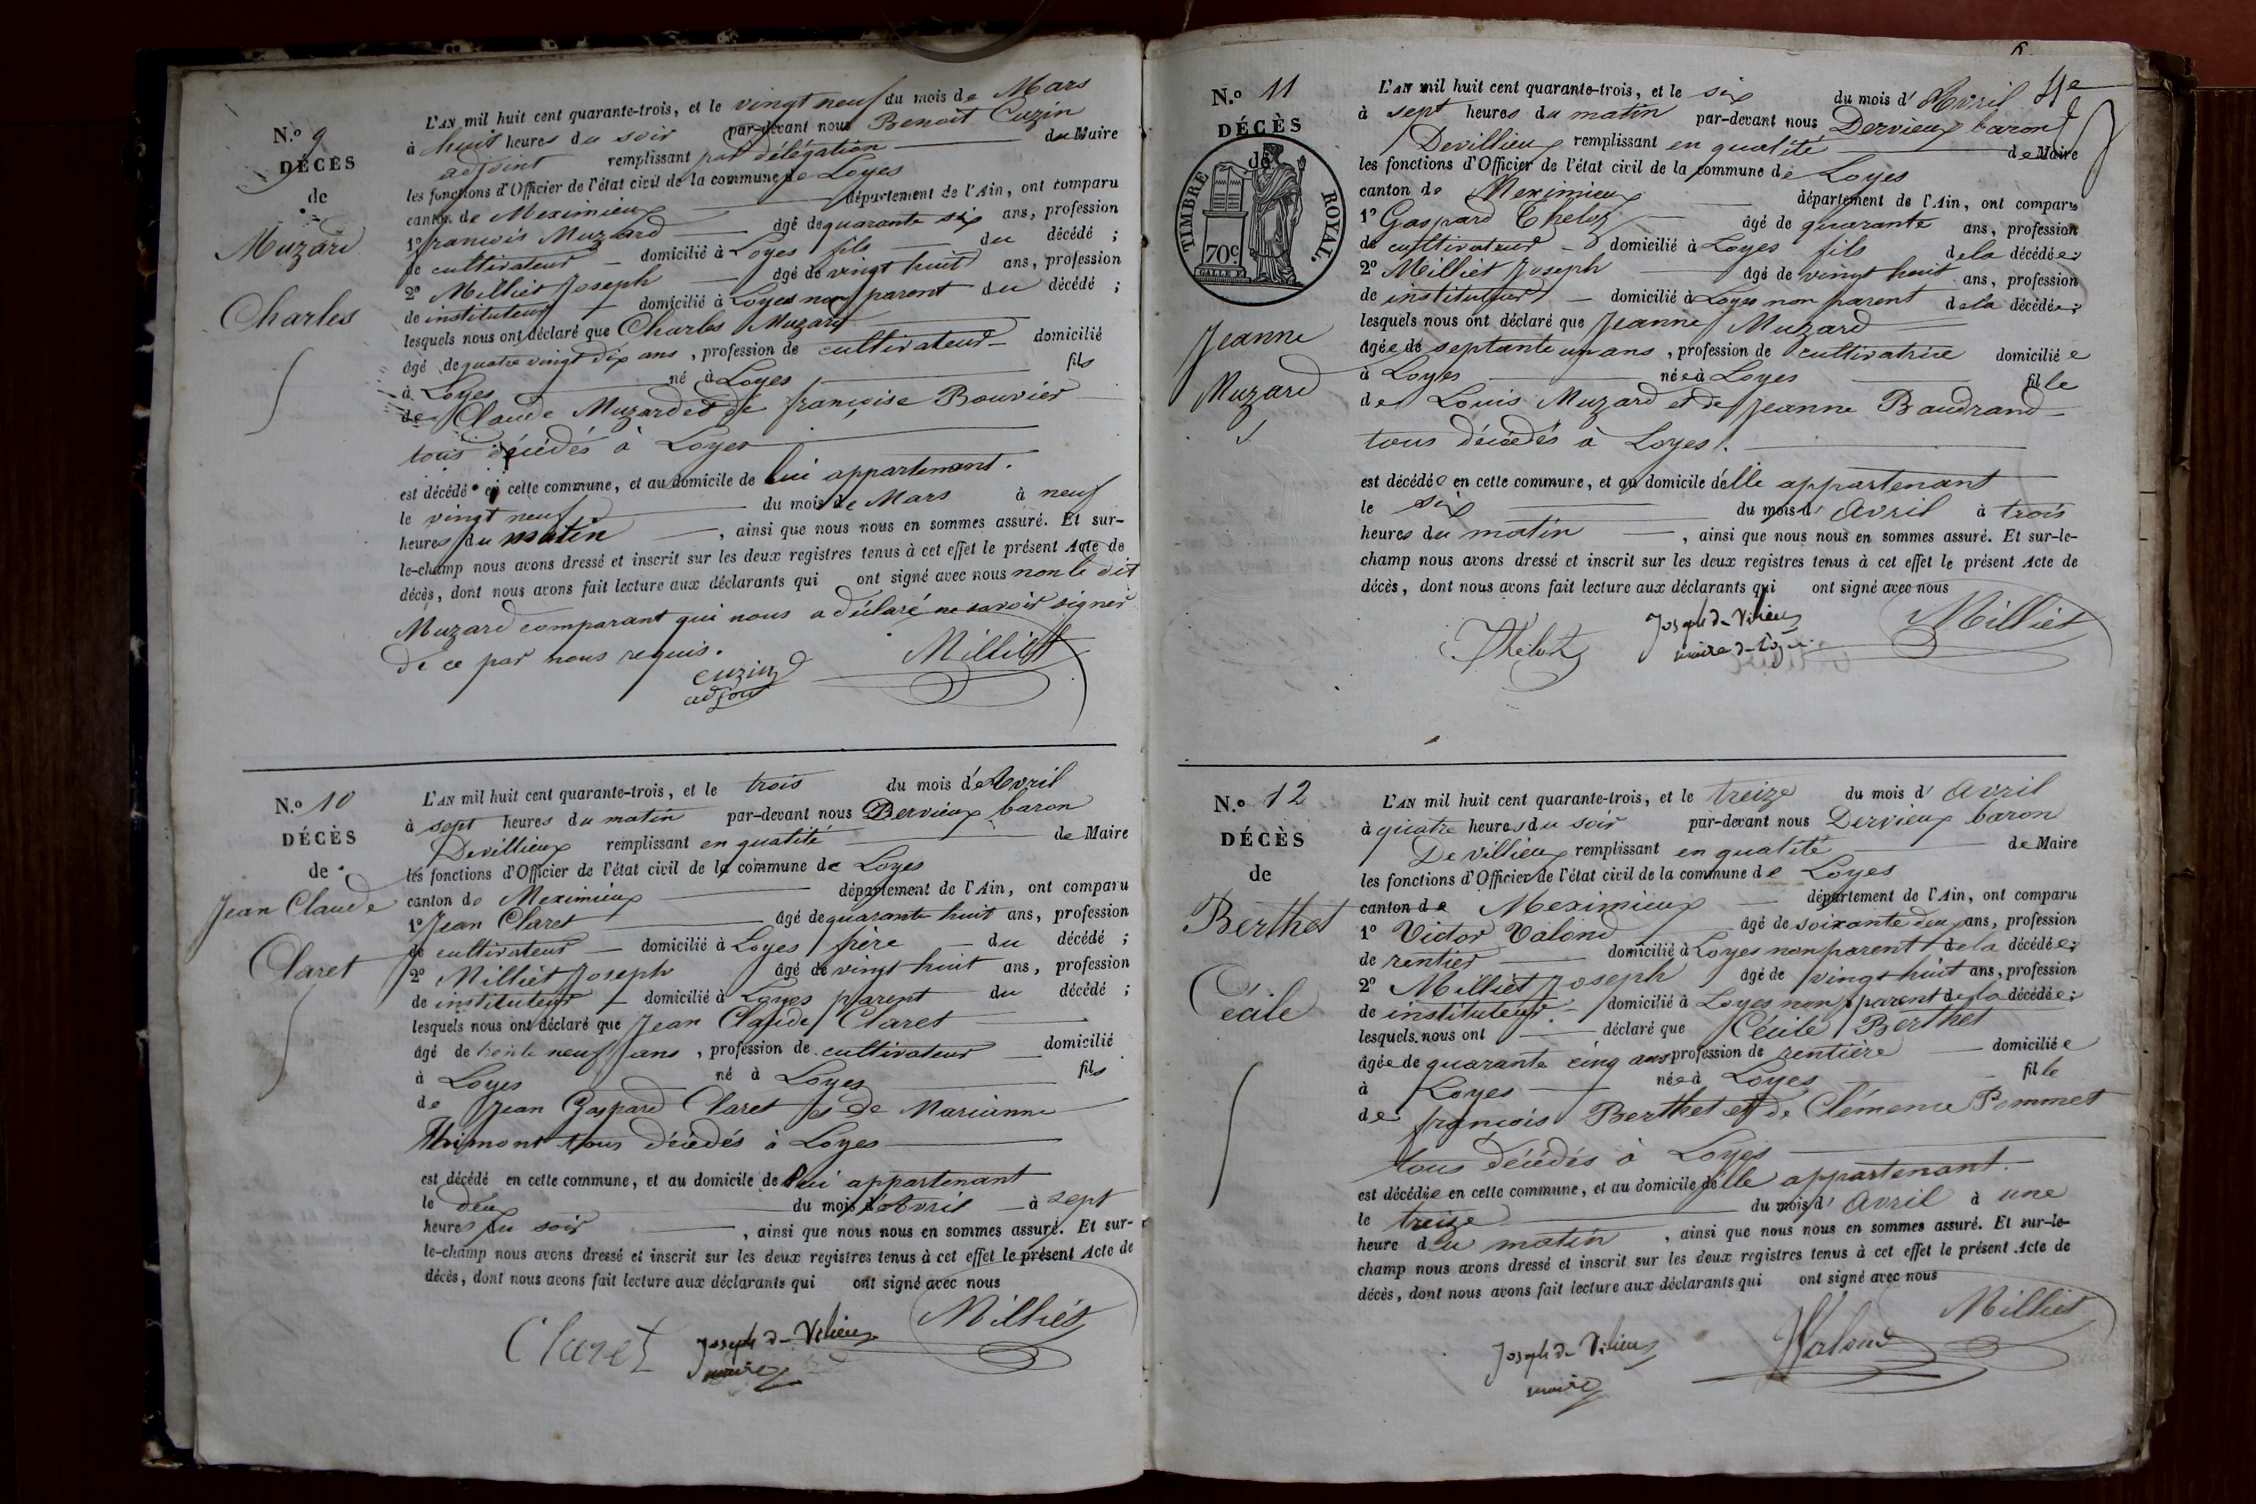 N.o 9
DÉCÈS
de
Muzard
Charles
L'AN mil huit cent quarante-trois, et le vingt neuf du mois de Mars
à huit heures du soir par-devant nous Benoit Cuzin
adjoint remplissant par délégation du Maire
les fonctions d'Officier de l'état civil de la commune de Loyes
canton de Meximieux département de l'Ain, ont comparu
1o francois Muzard âgé de quarante six ans, profession
de cultivateur domicilié à Loyes fils du décédé ;
2o Milliet Joseph âgé de vingt huit ans, profession
de instituteur domicilié à Loyes non parent du décédé ;
lesquels nous ont déclaré que Charles Muzard
âgé de quatre vingt dix ans, profession de cultivateur domicilié
à Loyes né à Loyes fils
de Claude Muzard et de françoise Bouvier
tous décédés à Loyes
est décédé en cette commune, et au domicile de lui appartenant.
le vingt neuf du mois de Mars à neuf
heures du matin, ainsi que nous nous en sommes assuré. Et sur-
le-champ nous avons dressé et inscrit sur les deux registres tenus à cet effet le présent Acte de
décès, dont nous avons fait lecture aux déclarants qui ont signé avec nous non le dit
Muzard comparant qui nous a déclaré ne savoir signer
de ce par nous requis.
Cuzin Milliet
adjoint
N.o 10
DÉCÈS
de
Jean Claude
Claret
L'AN mil huit cent quarante-trois, et le trois du mois d'Avril
à sept heures du matin par-devant nous Dervieux baron
Devillieux remplissant en qualité de Maire
les fonctions d'Officier de l'état civil de la commune de Loyes
canton de Meximieux département de l'Ain, ont comparu
1o Jean Claret âgé de quarante huit ans, profession
de cultivateur domicilié à Loyes frère du décédé ;
2o Milliet Joseph âgé de vingt huit ans, profession
de instituteur domicilié à Loyes parent du décédé ;
lesquels nous ont déclaré que Jean Claude Claret
âgé de trente neuf ans, profession de cultivateur domicilié
à Loyes né à Loyes fils
de Jean Gaspard Claret et de Marianne
tous décédés à Loyes
est décédé en cette commune, et au domicile de lui appartenant
le deux du mois d'Avril à sept
heures du soir, ainsi que nous nous en sommes assuré. Et sur-
le-champ nous avons dressé et inscrit sur les deux registres tenus à cet effet le présent Acte de
décès, dont nous avons fait lecture aux déclarants qui ont signé avec nous
Claret Joseph de Vilieux Milliet
maire
N.o 11
DÉCÈS
de
TIMBRE ROYAL.
70c
Jeanne
Muzard
L'AN mil huit cent quarante-trois, et le six du mois d'Avril
à sept heures du matin par-devant nous Dervieux baron
Devillieux remplissant en qualité de Maire
les fonctions d'Officier de l'état civil de la commune de Loyes
canton de Meximieux département de l'Ain, ont comparu
1o Gaspard Theloz âgé de quarante ans, profession
de cultivateur domicilié à Loyes fils de la décédée;
2o Milliet Joseph âgé de vingt huit ans, profession
de instituteur domicilié à Loyes non parent de la décédée;
lesquels nous ont déclaré que Jeanne Muzard
âgée de septante un ans, profession de cultivatrice domiciliée
à Loyes née à Loyes fille
de Louis Muzard et de Jeanne Baudrand
tous décédés à Loyes.
est décédée en cette commune, et au domicile d'elle appartenant
le six du mois d'Avril à trois
heures du matin, ainsi que nous nous en sommes assuré. Et sur-le-
champ nous avons dressé et inscrit sur les deux registres tenus à cet effet le présent Acte de
décès, dont nous avons fait lecture aux déclarants qui ont signé avec nous
Theloz Joseph de Vilieux Milliet
maire de
N.o 12
DÉCÈS
de
Berthet
Cécile
L'AN mil huit cent quarante-trois, et le treize du mois d'Avril
à quatre heures du soir par-devant nous Dervieux baron
De villieux remplissant en qualité de Maire
les fonctions d'Officier de l'état civil de la commune de Loyes
canton de Meximieux département de l'Ain, ont comparu
1o Victor Valond âgé de soixante deux ans, profession
de rentier domicilié à Loyes non parent de la décédée;
2o Milliet Joseph âgé de vingt huit ans, profession
de instituteur domicilié à Loyes non parent de la décédée;
lesquels nous ont déclaré que Cécile Berthet
âgée de quarante cinq ans profession de rentière domiciliée
à Loyes née à Loyes fille
de françois Berthet et de Clémence Pommet
tous décédés à Loyes
est décédée en cette commune, et au domicile d'elle appartenant.
le treize du mois d'Avril à une
heure du matin, ainsi que nous nous en sommes assuré. Et sur-le-
champ nous avons dressé et inscrit sur les deux registres tenus à cet effet le présent Acte de
décès, dont nous avons fait lecture aux déclarants qui ont signé avec nous
Joseph de Vilieux Valond Milliet
maire